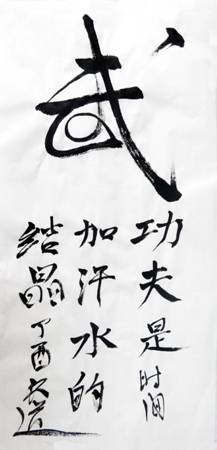 武
功夫是时间
加汗水的
结晶丁酉